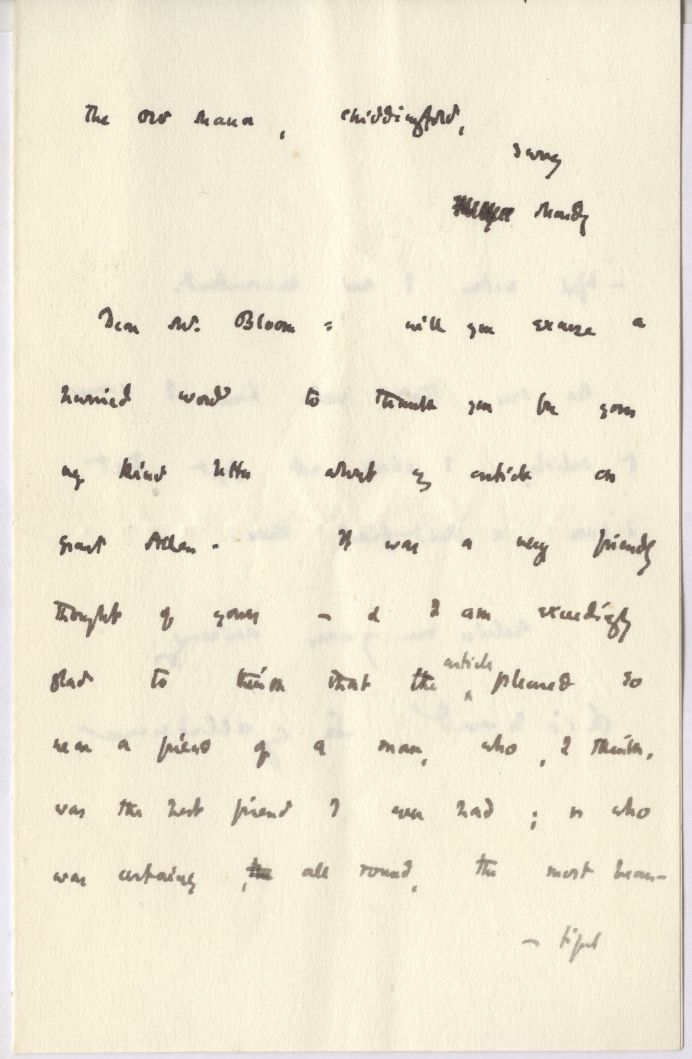 The Old Manor, Chiddingfold,
Surrey
Monday
Dear Mr. Bloom = will you excuse a
hurried word to thank you for your
kind letter about my article on
Grant Allen. It was a very friendly
thought of yours – & I am exceedingly
glad to think that the article pleased so
near a friend of a man, who, I think,
was the best friend I ever had; & who
was certainly, all round, the most beau-
– tiful